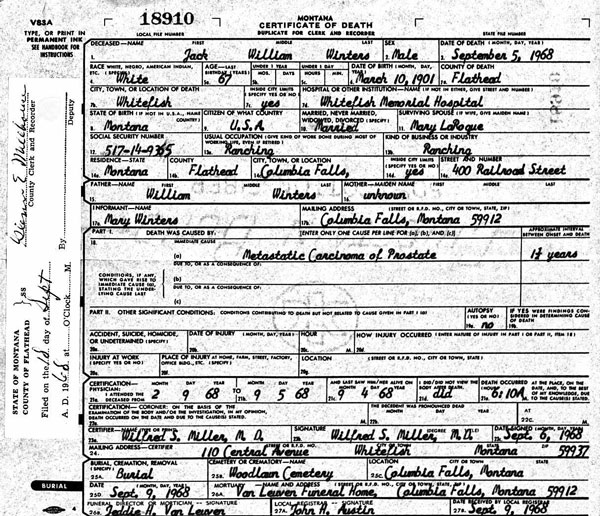 VS3A
TYPE, OR PRINT IN
PERMANENT INK
SEE HANDBOOK FOR
INSTRUCTIONS
18910
LOCAL FILE NUMBER
MONTANA
CERTIFICATE OF DEATH
DUPLICATE FOR CLERK AND RECORDER
STATE FILE NUMBER
DECEASED—NAME FIRST MIDDLE LAST SEX DATE OF DEATH (MONTH, DAY, YEAR)
1. Jack William Winters 2. Male 3. September 5, 1968
RACE WHITE, NEGRO, AMERICAN INDIAN, ETC. (SPECIFY) AGE—LAST BIRTHDAY (YEARS) UNDER 1 YEAR UNDER 1 DAY DATE OF BIRTH (MONTH, DAY, YEAR) COUNTY OF DEATH
White 67 MOS. DAYS HOURS MIN. March 10, 1901 Flathead
CITY, TOWN, OR LOCATION OF DEATH INSIDE CITY LIMITS (SPECIFY YES OR NO) HOSPITAL OR OTHER INSTITUTION—NAME (IF NOT IN EITHER, GIVE STREET AND NUMBER)
7b. Whitefish 7c. yes 7d. Whitefish Memorial Hospital
STATE OF BIRTH (IF NOT IN U.S.A., NAME COUNTRY) CITIZEN OF WHAT COUNTRY MARRIED, NEVER MARRIED, WIDOWED, DIVORCED (SPECIFY) SURVIVING SPOUSE (IF WIFE, GIVE MAIDEN NAME)
8. Montana 9. U.S.A 10. Married 11. Mary LaRoque
SOCIAL SECURITY NUMBER USUAL OCCUPATION (GIVE KIND OF WORK DONE DURING MOST OF WORKING LIFE, EVEN IF RETIRED) KIND OF BUSINESS OR INDUSTRY
12. Ranching 13b. Ranching
RESIDENCE—STATE COUNTY CITY, TOWN, OR LOCATION INSIDE CITY LIMITS (SPECIFY YES OR NO) STREET AND NUMBER
14a. Montana 14b. Flathead Columbia Falls, yes 14e. 400 Railroad Street
FATHER—NAME FIRST MIDDLE LAST MOTHER—MAIDEN NAME FIRST MIDDLE LAST
15. William Winters 16. unknown
INFORMANT—NAME MAILING ADDRESS (STREET OR R.F.D. NO., CITY OR TOWN, STATE, ZIP)
17a. Mary Winters 17b. Columbia Falls, Montana 59912
PART I. DEATH WAS CAUSED BY: [ENTER ONLY ONE CAUSE PER LINE FOR (a), (b), AND (c)] APPROXIMATE INTERVAL BETWEEN ONSET AND DEATH
18. IMMEDIATE CAUSE
(a) Metastatic Carcinoma of Prostate years
DUE TO, OR AS A CONSEQUENCE OF:
CONDITIONS, IF ANY, WHICH GAVE RISE TO IMMEDIATE CAUSE (a), STATING THE UNDERLYING CAUSE LAST
(b)
DUE TO, OR AS A CONSEQUENCE OF:
(c)
PART II. OTHER SIGNIFICANT CONDITIONS: CONDITIONS CONTRIBUTING TO DEATH BUT NOT RELATED TO CAUSE GIVEN IN PART I (a) AUTOPSY (YES OR NO) IF YES WERE FINDINGS CONSIDERED IN DETERMINING CAUSE OF DEATH
19a. no 19b.
ACCIDENT, SUICIDE, HOMICIDE, OR UNDETERMINED (SPECIFY) DATE OF INJURY (MONTH, DAY, YEAR) HOUR HOW INJURY OCCURRED (ENTER NATURE OF INJURY IN PART I OR PART II, ITEM 18)
20a. 20b. 20c. M. 20d.
INJURY AT WORK (SPECIFY YES OR NO) PLACE OF INJURY AT HOME, FARM, STREET, FACTORY, OFFICE BLDG., ETC. (SPECIFY) LOCATION (STREET OR R.F.D. NO., CITY OR TOWN, STATE)
20e. 20f. 20g.
CERTIFICATION—PHYSICIAN: MONTH DAY YEAR MONTH DAY YEAR AND LAST SAW HIM/HER ALIVE ON MONTH DAY YEAR I DID/DID NOT VIEW THE BODY AFTER DEATH. DEATH OCCURRED AT THE PLACE, ON THE DATE, AND, TO THE BEST OF MY KNOWLEDGE, DUE TO THE CAUSE(S) STATED.
I ATTENDED THE DECEASED FROM 2 9 68 TO 9 5 68 9 4 68 did 6:10A M.
CERTIFICATION—CORONER: ON THE BASIS OF THE EXAMINATION OF THE BODY AND/OR THE INVESTIGATION, IN MY OPINION, DEATH OCCURRED ON THE DATE AND DUE TO THE CAUSE(S) STATED. THE DECEDENT WAS PRONOUNCED DEAD MONTH DAY YEAR HOUR
22a. 22b. 22c. M.
CERTIFIER—NAME (TYPE OR PRINT) SIGNATURE (DEGREE OR TITLE) DATE SIGNED (MONTH, DAY, YEAR)
Wilfred S. Miller, M. D. Wilfred S. Miller, M.D. Sept. 6, 1968
MAILING ADDRESS—CERTIFIER (STREET OR R.F.D. NO., CITY OR TOWN, STATE, ZIP)
24. 110 Central Avenue Whitefish Montana 59937
BURIAL, CREMATION, REMOVAL (SPECIFY) CEMETERY OR CREMATORY—NAME LOCATION (CITY OR TOWN, STATE)
25A. Burial 25B. Woodlawn Cemetery 25C. Columbia Falls, Montana
DATE (MONTH, DAY, YEAR) MORTUARY—NAME AND ADDRESS (STREET OR R.F.D. NO., CITY OR TOWN, STATE, ZIP)
25D. Sept. 9, 1968 26A. Van Leuven Funeral Home, Columbia Falls, Montana 59912
FUNERAL DIRECTOR OR MORTICIAN—SIGNATURE LOCAL REGISTRAR—SIGNATURE DATE RECEIVED BY LOCAL REGISTRAR
Van Leuven John H. Austin Sept. 9, 1968
STATE OF MONTANA
COUNTY OF FLATHEAD
ss
Filed on the day of Sept
A. D. 1968 at O'Clock M.
County Clerk and Recorder
By Deputy
BURIAL